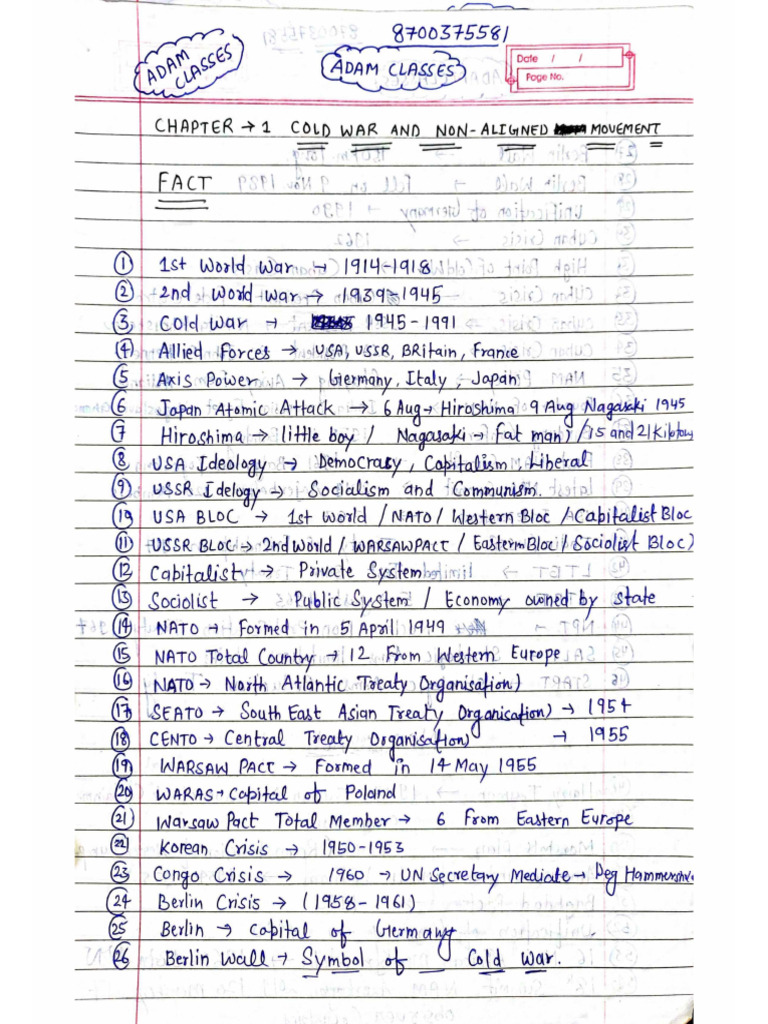 8700375581
ADAM CLASSES
ADAM CLASSES
Date / /
Page No.
CHAPTER → 1 COLD WAR AND NON-ALIGNED MOVEMENT
FACT
① 1st World War → 1914-1918
② 2nd World War → 1939-1945
③ Cold War → 1945-1991
④ Allied Forces → USA, USSR, BRitain, France
⑤ Axis Power → Germany, Italy, Japan
⑥ Japan Atomic Attack → 6 Aug → Hiroshima 9 Aug Nagasaki 1945
⑦ Hiroshima → little boy / Nagasaki → fat man) /15 and 21 Kiloton
⑧ USA Ideology → Democracy, Capitalism, Liberal
⑨ USSR Idelogy → Socialism and Communism.
⑩ USA BLOC → 1st World / NATO / Western Bloc / Capitalist Bloc
⑪ USSR BLOC → 2nd World / WARSAW PACT / Eastern Bloc / Sociolist Bloc)
⑫ Capitalist → Private System
⑬ Sociolist → Public System / Economy owned by state
⑭ NATO → Formed in 5 April 1949
⑮ NATO Total Country → 12 From Western Europe
⑯ NATO → North Atlantic Treaty Organisation)
⑰ SEATO → South East Asian Treaty Organisation) → 1954
⑱ CENTO → Central Treaty Organisation) → 1955
⑲ WARSAW PACT → Formed in 14 May 1955
⑳ WARAS → Capital of Poland
㉑ Warsaw Pact Total Member → 6 From Eastern Europe
㉒ Korean Crisis → 1950-1953
㉓ Congo Crisis → 1960 → UN Secretary Mediate → Deg
㉔ Berlin Crisis → (1958-1961)
㉕ Berlin → Capital of Germany
㉖ Berlin Wall → Symbol of Cold War.